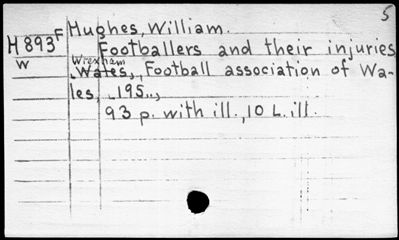 5
Hughes, William.
H 893 F
Footballers and their injuries.
W
Wrexham
Wales, Football association of Wa-
les, 195..,
93 p. with ill., 10 L. ill.